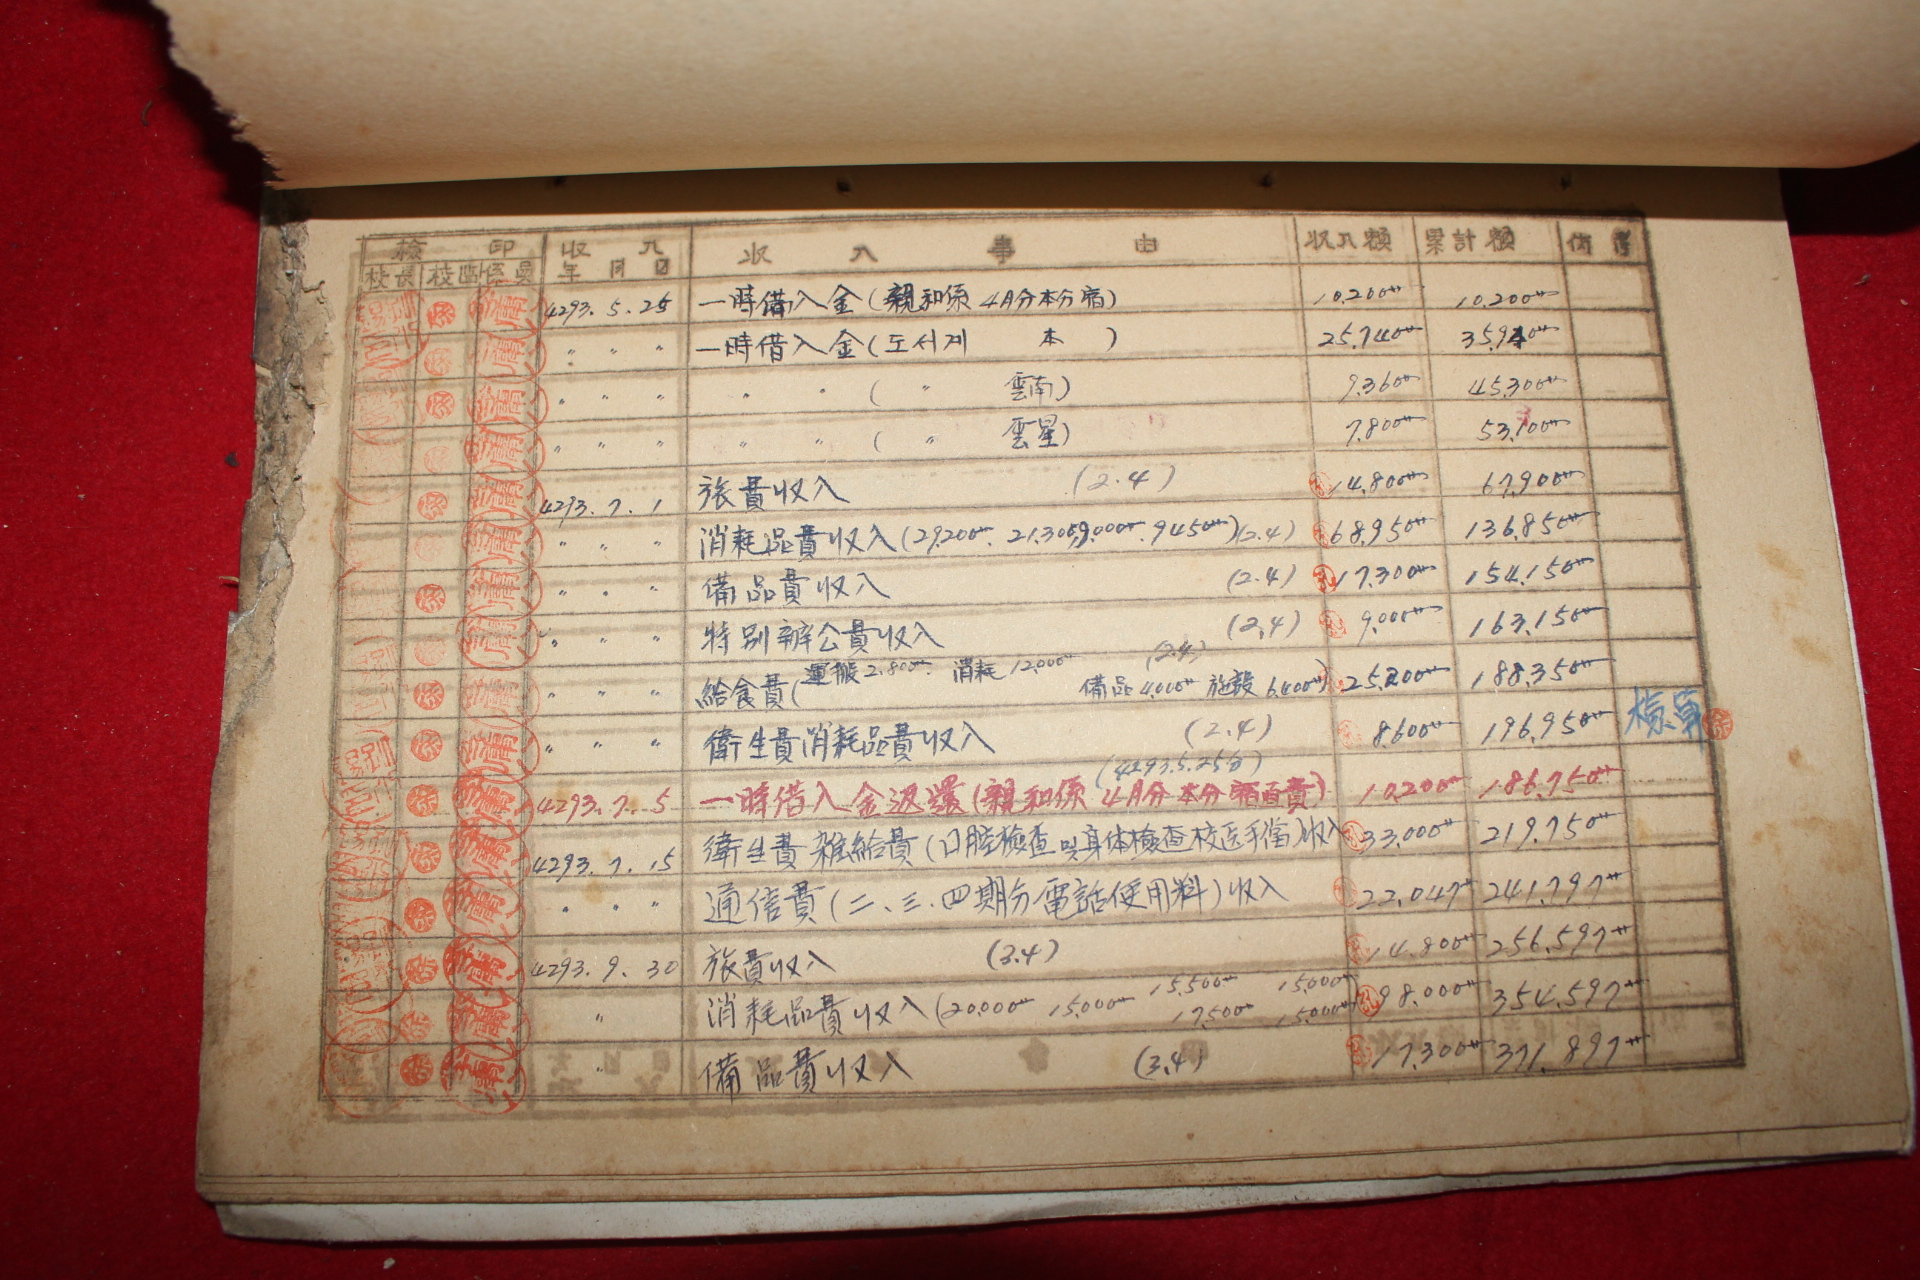 檢 印 收 入 收 入 事 由 收入額 累計額 備考
校長 校監 係員 年 月 日
4293. 5. 25 一時借入金(親和係 4月分本分宿) 10.200 10.200
" " " 一時借入金(도서계 本 ) 25.740 35.940
" " " " " ( " 雲南) 9.360 45.300
" " " " " ( " 雲星) 7.800 53.100
4293. 7. 1 旅費收入 (2.4) 14.800 67.900
" " " 消耗品費收入(29.200. 21.300, 9.000. 9450)(2.4) 68.950 136.850
" " " 備品費收入 (2.4) 17.300 154.150
" " " 特別辦公費收入 (2.4) 9.000 163.150
" " " 給食費(運搬 2.800. 消耗 12.000 (2.4) 備品 4.000 施設 6.400) 25.200 188.350
" " " 衛生費消耗品費收入 (2.4) 8.600 196.950 檢算
(4293.5.25分)
4293. 7. 5 一時借入金返還(親和係 4月分本分宿直費) 10.200 186.750
4293. 7. 15 衛生費 雜給費(口腔檢查 및 身体檢查校医手當)收入 33.000 219.750
" " " 通信費(二、三、四期分電話使用料)收入 22.047 241.797
4293. 9. 30 旅費收入 (3.4) 14.800 256.597
" 消耗品費收入(20.000 15.000 15.500 17.500 15.000 15.000) 98.000 354.597
" 備品費收入 (3.4) 17.300 371.897